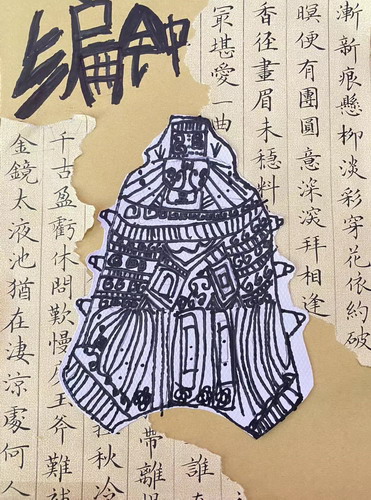 编钟
漸新痕懸柳淡彩穿花依約破
暝便有團圓意深深拜相逢
香徑畫眉未穩料
最堪愛一曲
誰
帶離
秋冷
千古盈虧休問歎慢
玉斧難補
金鏡太液池猶在淒涼處何人